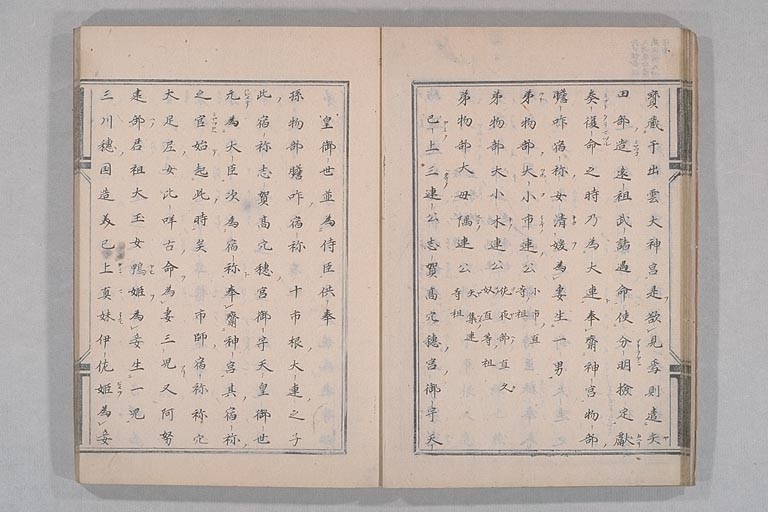 寳蔵于出雲大神宮是欲見焉則遣矢
田部造遠祖武諸遇命使分明撿定獻
奏復命之時乃為大連奉齋神宮物部
膽咋宿祢女清媛為妻生一男
弟物部大小市連公 小市直 等祖
弟物部大小木連公 佐夜部直久 奴直等祖
弟物部大母隅連公 矢集連 等祖
已上三連公志賀髙穴穂宮御宇天
皇御世並為侍臣供奉
孫物部膽咋宿祢 十市根大連之子
此宿祢志賀髙穴穂宮御宇天皇御世
元為大臣次為宿祢奉齋神宮其宿祢
之官始起此時矣市師宿祢祢穴
太足尼女比咩古命為妻三児又阿努
建部君祖大玉女鴨姫為妾生一児
三川穂国造美己上直妹伊佐姫為妾